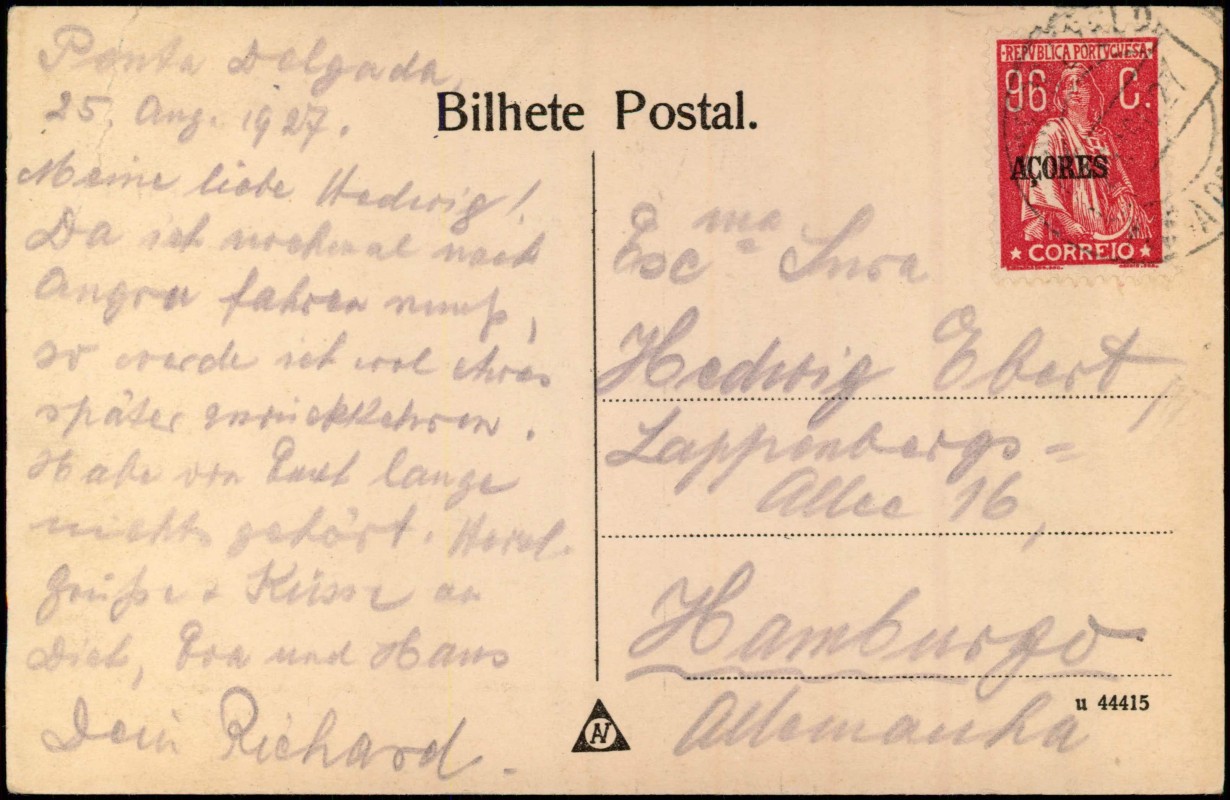 Ponta Delgada,
25. Aug. 1927.
Meine liebe Hedwig!
Da ich nochmal nach
Angra fahren muß,
so werde ich wol etwas
später zurückkehren.
Habe von Euch lange
nichts gehört. Herzl.
Grüße & Küsse an
Dich, Eva und Hans
Dein Richard.
Bilhete Postal.
REPVBLICA PORTVGVESA
96 C.
AÇORES
CORREIO
Exc ma Snra
Hedwig Ebert
Lappenbergs=
Allee 16,
Hamburgo
Allemanha
u 44415
AV